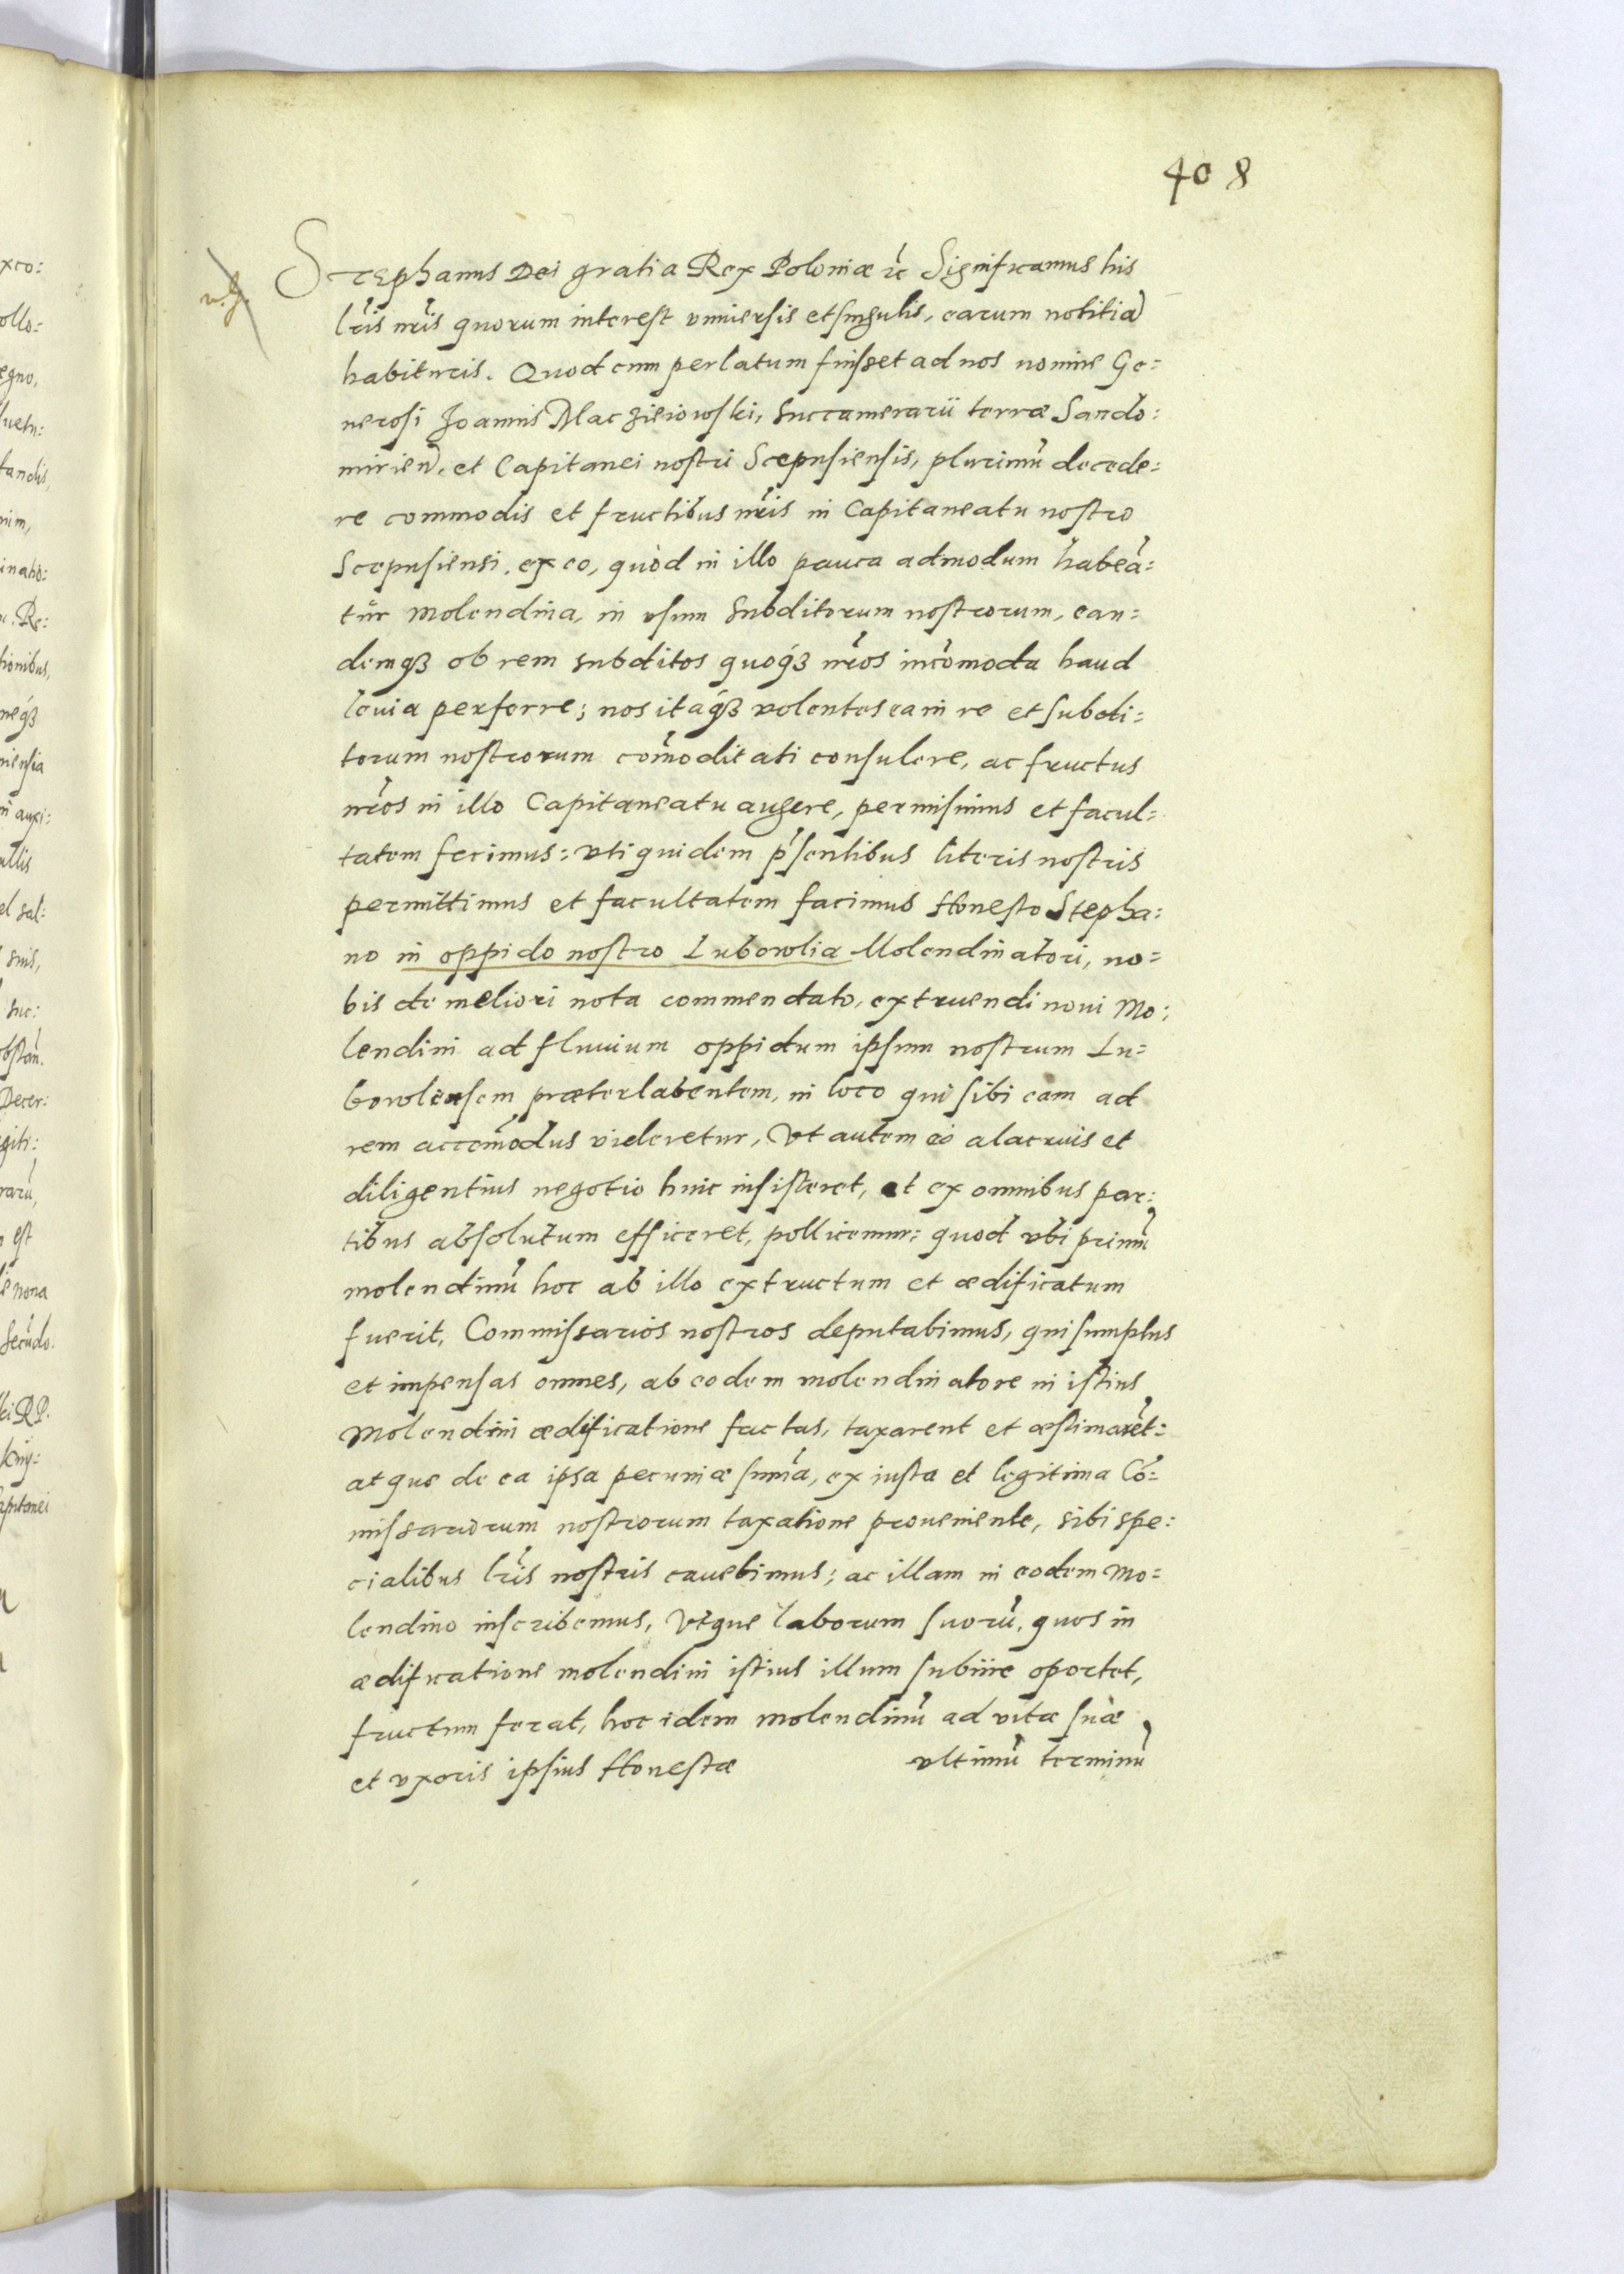 408
Stephanus Dei gratia Rex Poloniæ &c Significamus his
lr̃is nr̃is quorum interest vniuersis et singulis, earum notitiã
habituris. Quod cum perlatum fuisset ad nos nomine Ge=
nerosi Joannis Maczieiowski, Succamerarii terræ Sando:
mirien̄, et Capitanei nostri Scepusiensis, plurimũ decede:
re commodis et fructibus nr̃is in Capitaneatu nostro
Scepusiensi. ex eo, quòd in illo pauca admodum habeã:
tur molendina, in vsum subditorum nostrorum, ean:
demqꝫ ob rem subditos quoqꝫ nr̃os incõmoda haud
leuia perferre; nos itaqꝫ volentes ea in re et subdi:
torum nostrorum com̃oditati consulere, ac fructus
nr̃os in illo Capitaneatu augere, permisimus et facul=
tatem fecimus: vti quidem p̃sentibus literis nostris
permittimus et facultatem facimus Honesto Stepha:
no in oppido nostro Lubowlia Molendinatori, no=
bis de meliori nota commendato, extruendi noui Mo:
lendini ad fluuium oppidum ipsum nostrum Lu=
bowlensem præterlabentem, in loco qui sibi eam ad
rem accom̃odus videretur, Vt autem eò alacrius et
diligentius negotio huic insisteret, et ex omnibus par:
tibus absolutum efficeret, pollicemur: quod vbi primũ
molendinũ hoc ab illo extructum et ædificatum
fuerit, Commissarios nostros deputabimus, qui sumptus
et impensas omnes, ab eodem molendinatore in istius
Molendini ædificatione factas, taxarent et æstimarẽt:
atque de ea ipsa pecuniæ sum̃a, ex iusta et legitima Cõ=
missariorum nostrorum taxatione proueniente, sibi spe:
cialibus lr̃is nostris cauebimus; ac illam in eodem Mo=
lendino inscribemus, Vtque laborum suorũ, quos in
ædificatione molendini istius illum subiire oportet,
fructum ferat, hoc idem molendinũ ad vitæ suæ
et vxoris ipsius Honestæ ultimũ terminũ